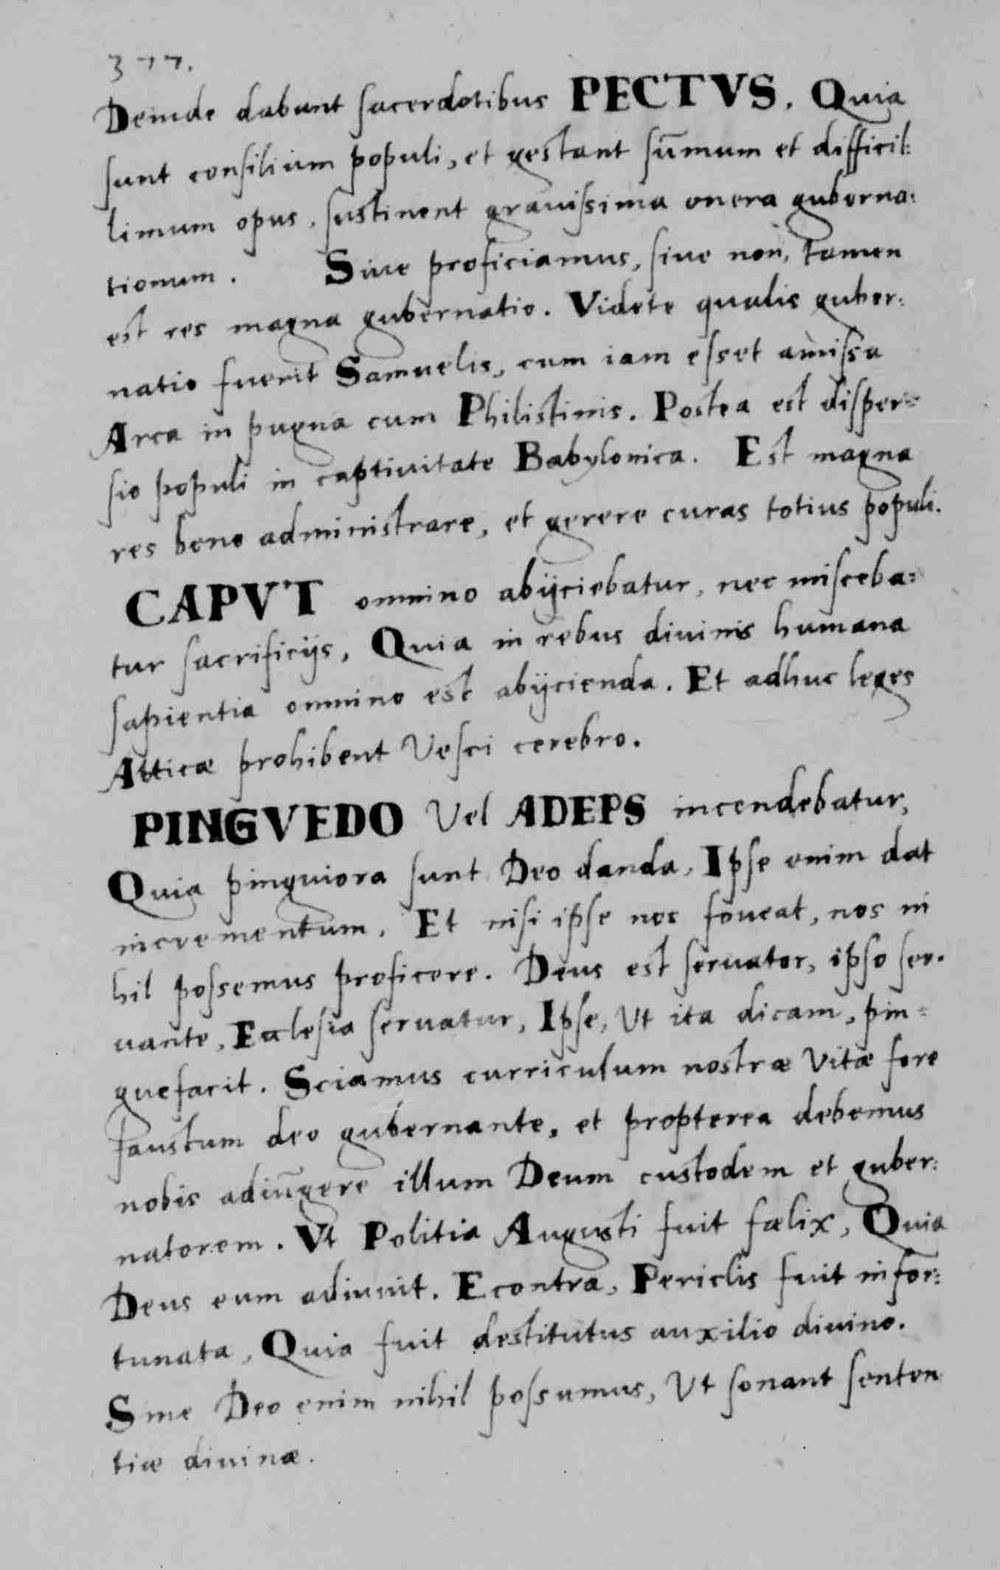 377.
Deinde dabunt sacerdotibus PECTVS. Quia
sunt consilium populi, et gestant sūmum et difficil:
limum opus, sustinent grauissima onera guberna:
tionum. Siue proficiamus, siue non, tamen
est res magna gubernatio. Videte qualis guber:
natio fuerit Samuelis, cum iam esset amissa
Arca in pugna cum Philistinis. Postea est disper=
sio populi in captiuitate Babylonica. Est magna
res bene administrare, et gerere curas totius populi.
CAPVT omnino abijciebatur, nec misceba:
tur sacrificijs, Quia in rebus diuinis humana
sapientia omnino est abijcienda. Et adhuc leges
Atticæ prohibent Vesci cerebro.
PINGVEDO Vel ADEPS incendebatur,
Quia pinguiora sunt Deo danda, Ipse enim dat
incrementum. Et nisi ipse nos foueat, nos ni
hil possemus proficere. Deus est seruator, ipso ser.
uante, Ecclesia seruatur, Ipse, Ut ita dicam, pin=
guefacit. Sciamus curriculum nostræ Vitæ fore
faustum deo gubernante, et propterea debemus
nobis adiūgere illum Deum custodem et guber:
natorem. Vt Politia Augusti fuit fælix, Quia
Deus eum adiuuit. Econtra, Periclis fuit infor:
tunata, Quia fuit destitutus auxilio diuino.
Sine Deo enim nihil possumus, Ut sonant senten
tiæ diuinæ.